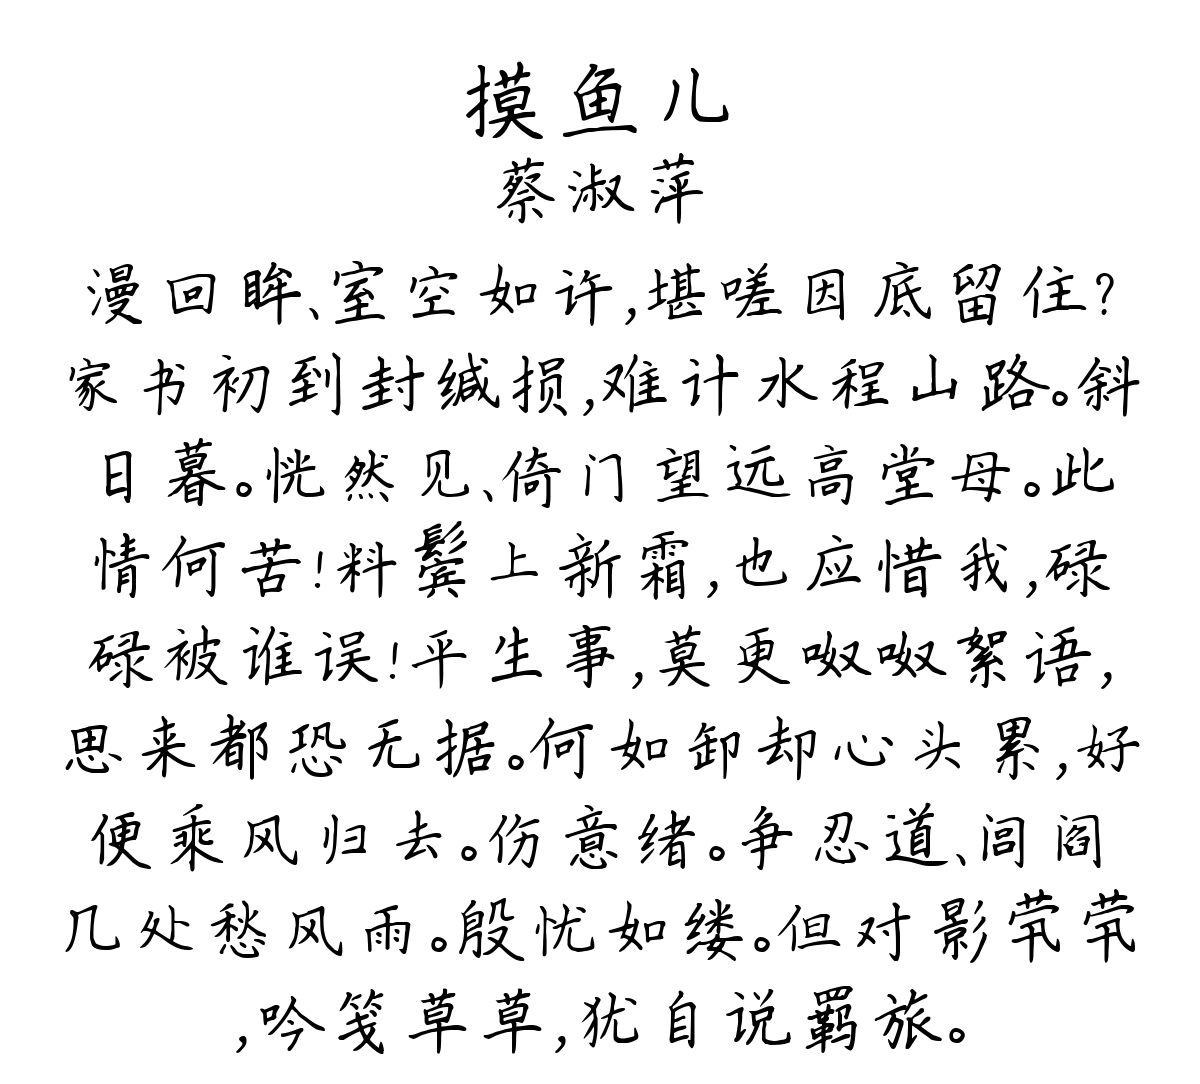 摸鱼儿
蔡淑萍
漫回眸、室空如许,堪嗟因底留住?
家书初到封缄损,难计水程山路。斜
日暮。恍然见、倚门望远高堂母。此
情何苦!料鬓上新霜,也应惜我,碌
碌被谁误!平生事,莫更呶呶絮语,
思来都恐无据。何如卸却心头累,好
便乘风归去。伤意绪。争忍道、闾阎
几处愁风雨。殷忧如缕。但对影茕茕
,吟笺草草,犹自说羁旅。